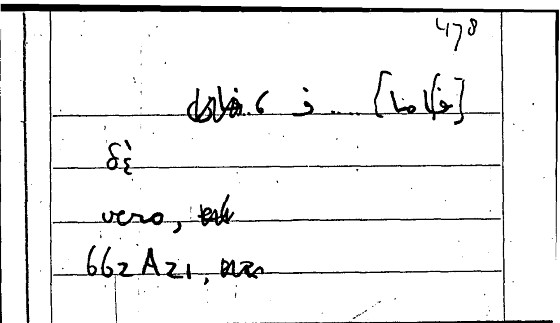 478
[فاما] .... ف
δὲ
vero,
662A21,